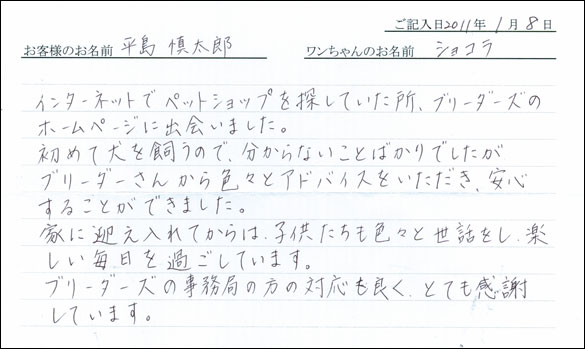 ご記入日2011年1月8日
お客様のお名前 平島 慎太郎 ワンちゃんのお名前 ショコラ
インターネットでペットショップを探していた所、ブリーダーズの
ホームページに出会いました。
初めて犬を飼うので、分からないことばかりでしたが
ブリーダーさんから色々とアドバイスをいただき、安心
することができました。
家に迎え入れてからは、子供たちも色々と世話をし、楽
しい毎日を過ごしています。
ブリーダーズの事務局の方の対応も良く、とても感謝
しています。